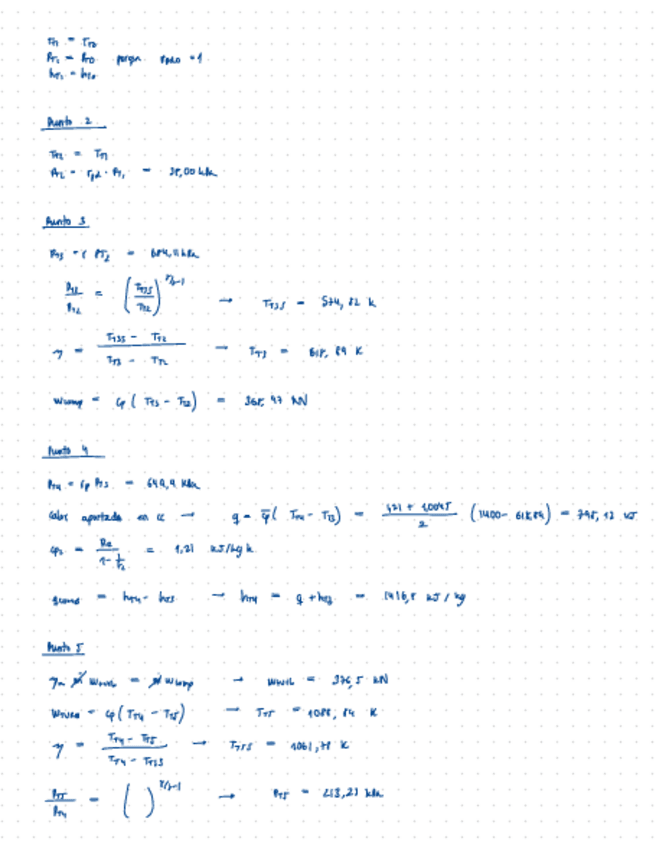 T_T1 = T_T0
P_T1 = P_T0 porqn r_pad = 1
h_T1 = h_T0
Punto 2
T_T2 = T_T1
P_T2 = r_pd · P_T1 = 38,00 kPa
Punto 3
P_T3 = r P_T2 = 684,11 kPa
P_T3 / P_T2 = (T_T3S / T_T2)^γ/γ-1 → T_T3S = 574,82 K
η = (T_T3S - T_T2) / (T_T3 - T_T2) → T_T3 = 618,89 K
W_comp = cp ( T_T3 - T_T2 ) = 368,97 kN
Punto 4
P_T4 = r_p P_T3 = 649,9 kPa
Calor aportado en cc → q = c̄p ( T_T4 - T_T3 ) = (1,21 + 1,0045) / 2 (1400 - 618,89) = 795,12 kJ
cp_2 = Ra / (1 - 1/γ_2) = 1,21 kJ/kg k
= h_T4 - h_T3 → h_T4 = q + h_T3 = 1416,8 kJ / kg
Punto 5
η_m ṁ W_turb = ṁ W_comp → W_turb = 376,5 kN
W_turb = cp ( T_T4 - T_T5 ) → T_T5 = 1088,84 K
η = (T_T4 - T_T5) / (T_T4 - T_T5S) → T_T5S = 1061,78 K
P_T5 / P_T4 = ( )^γ/γ-1 → P_T5 = 213,23 kPa